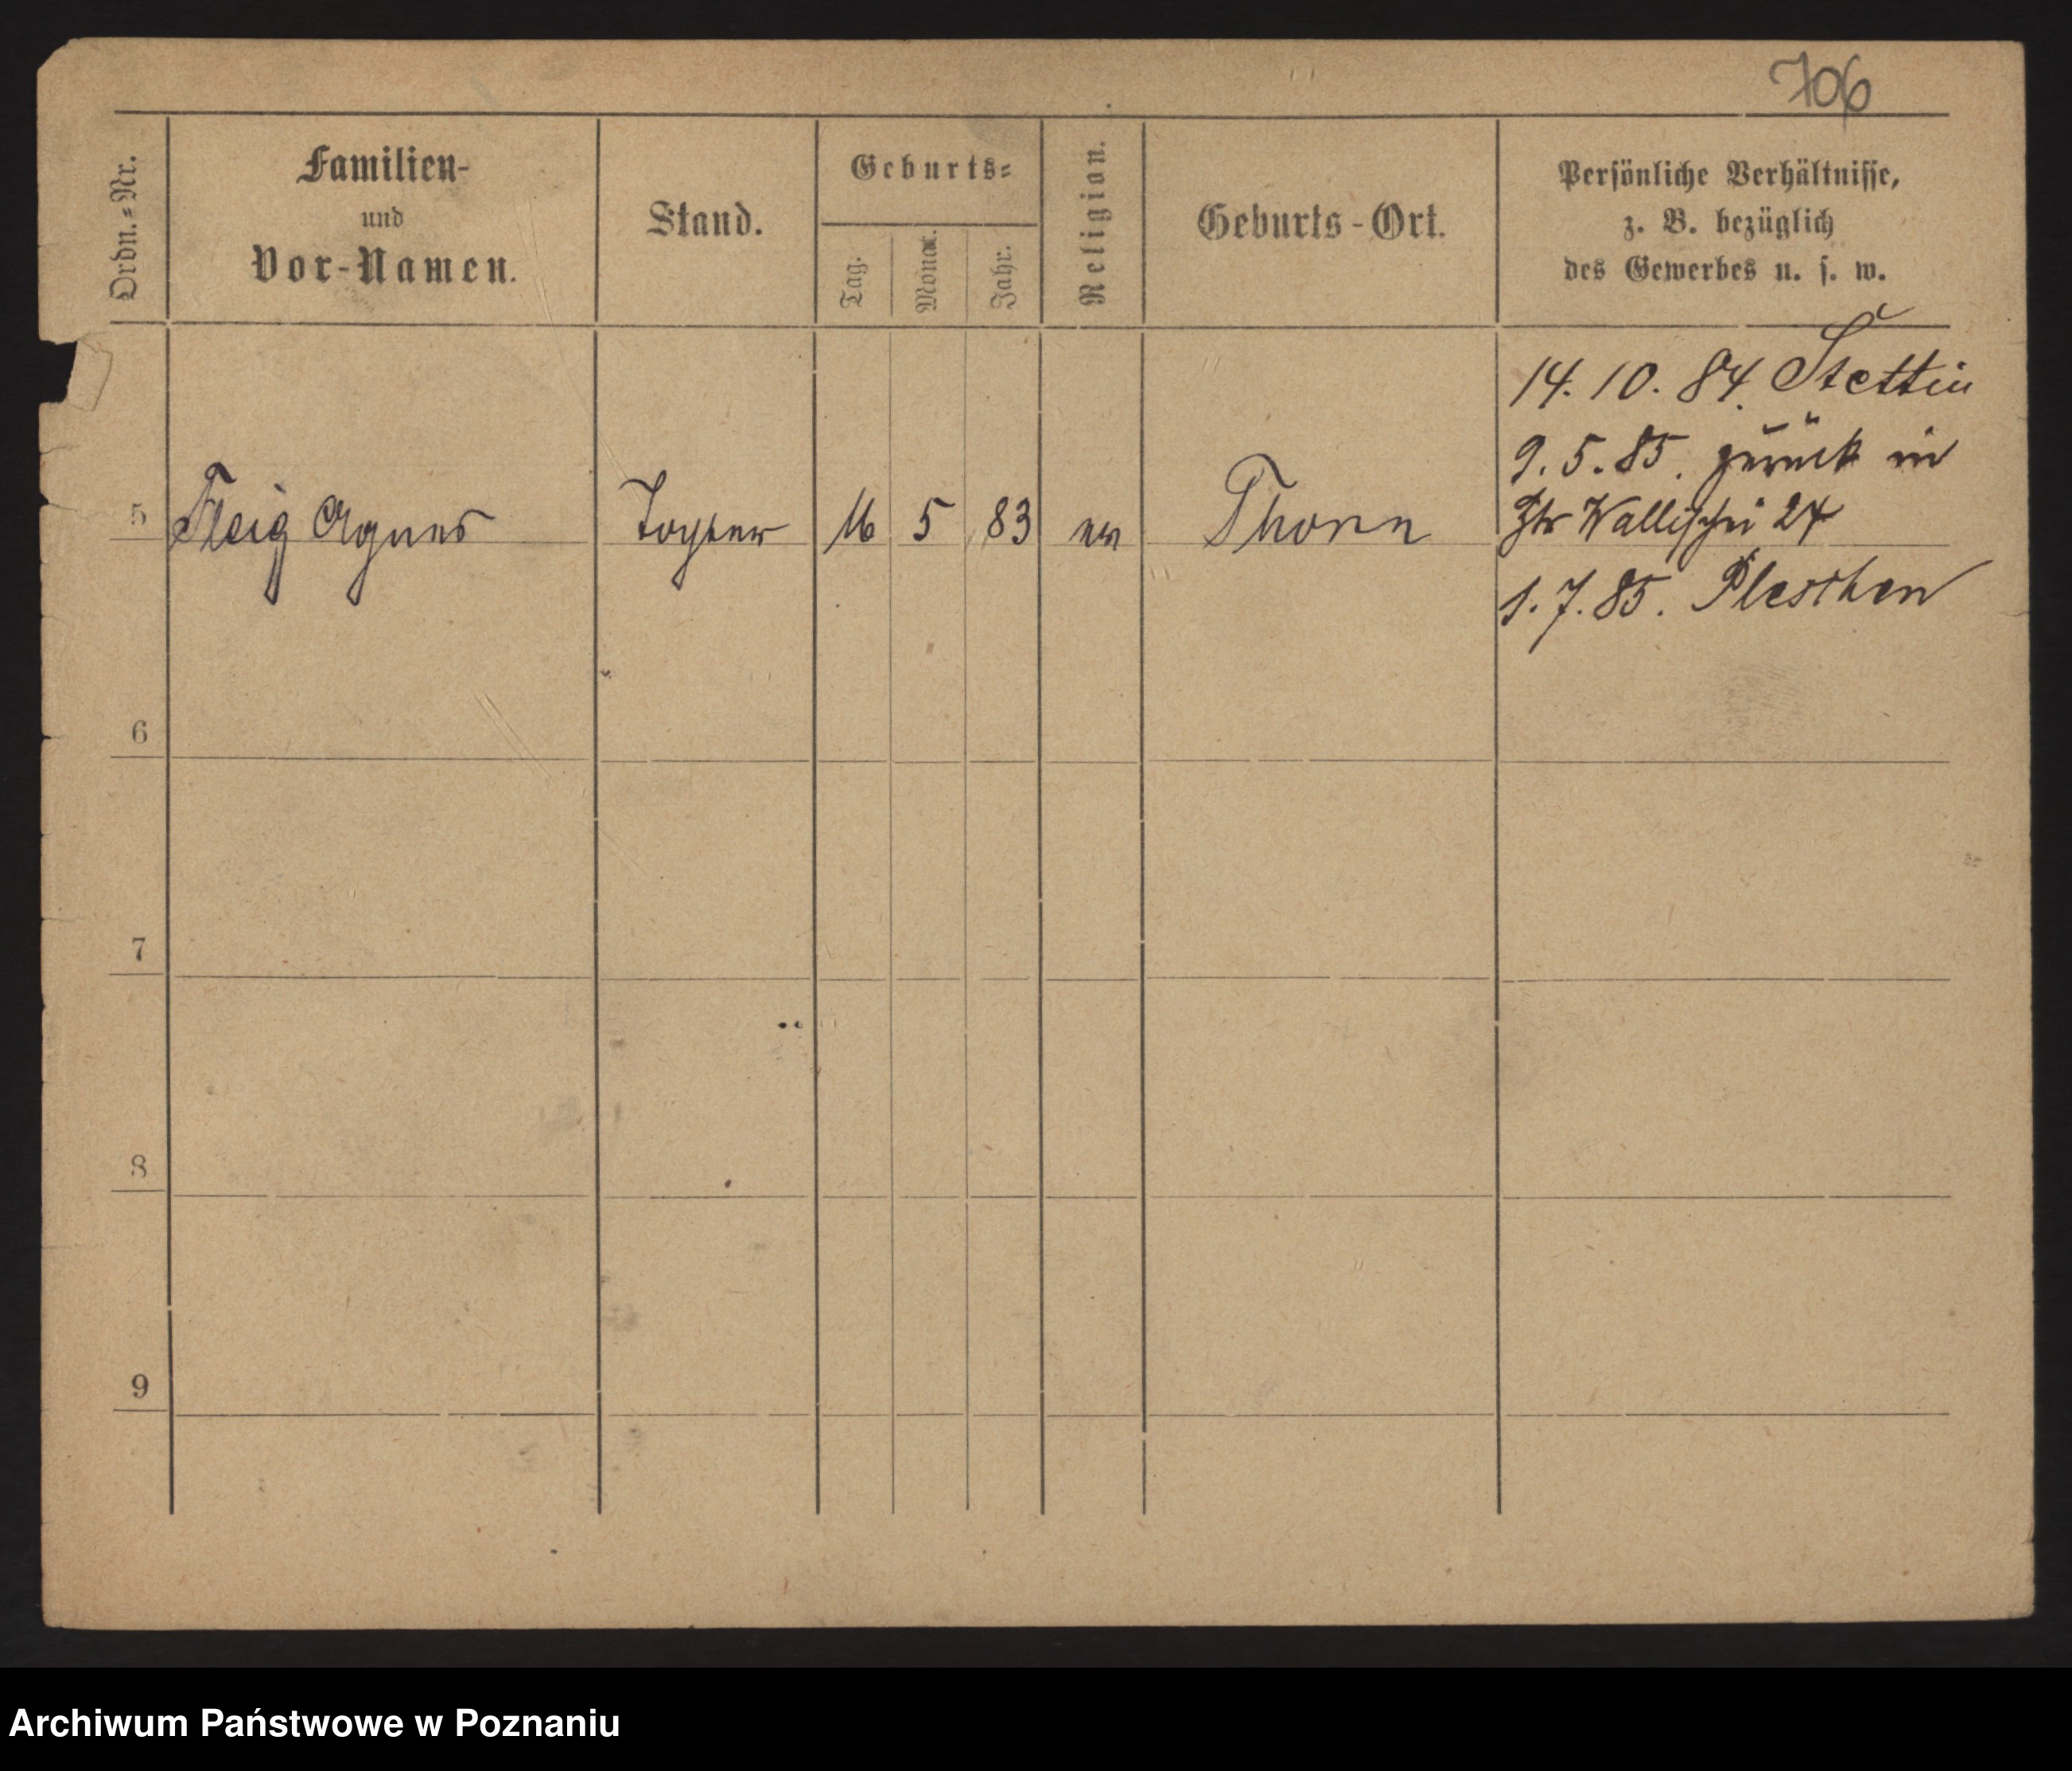 706
Ordn.=Nr.
Familien-
und
Vor-Namen.
Stand.
Geburts=
Tag.
Monat.
Jahr.
Religion.
Geburts-Ort.
Persönliche Verhältnisse,
z. B. bezüglich
des Gewerbes u. s. w.
14. 10. 84. Stettin
9. 5. 85. zurück in
Wallischei 24
5 Fleig Agnes Tochter 16 5 83 ev Thorn
1. 7. 85. Pleschen
6
7
8
9
Archiwum Państwowe w Poznaniu